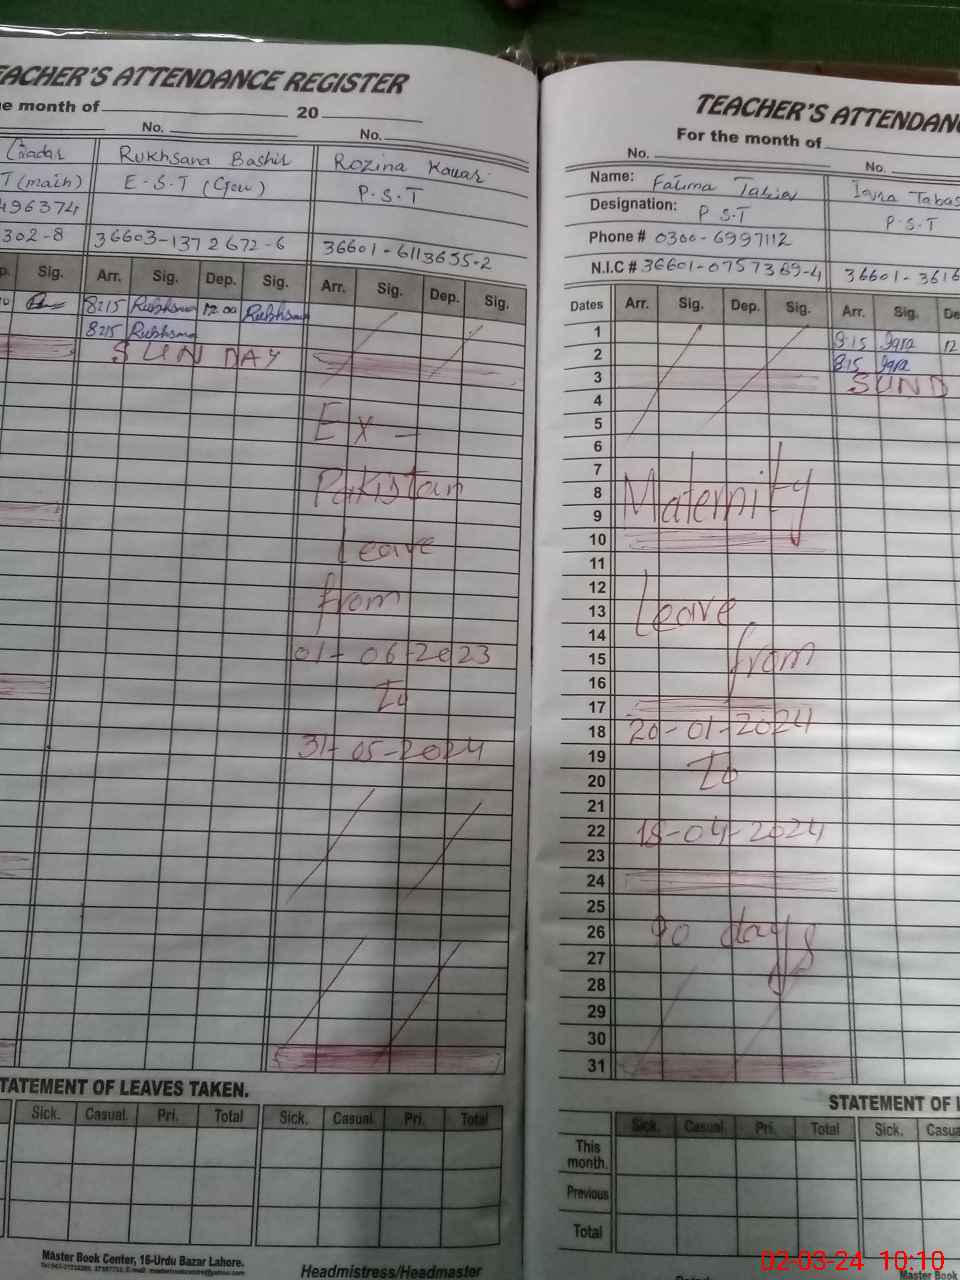 TEACHER'S ATTENDANCE REGISTER
month of 20
No. No.
Rukhsana Bashir Rozina Kausar
T (main) E-S-T (Gen) P.S.T
496374
302-8 36603-1372672-6 36601-6113655-2
Sig. Arr. Sig. Dep. Sig. Arr. Sig. Dep. Sig.
8:15 Rukhsana 12:00 Rukhsana
8:15 Rukhsana
SUNDAY
Ex-
Pakistan
Leave
from
01-06-2023
To
31-05-2024
STATEMENT OF LEAVES TAKEN.
Sick. Casual. Pri. Total Sick. Casual. Pri. Total
Master Book Center, 16-Urdu Bazar Lahore.
Headmistress/Headmaster
TEACHER'S ATTENDANC
For the month of
No. No.
Name: Fatima Iqra Tabas
Designation: P S.T P.S.T
Phone # 0300-6997112
N.I.C # 36601-0757369-4 36601-3616
Dates Arr. Sig. Dep. Sig. Arr. Sig. De
1 8:15 Iqra 12
2 8:15 Iqra
3 SUND
4
5
6
7
8 Maternity
9
10
11
12
13 Leave
14
15 from
16
17
18 20-01-2024
19
20 To
21
22 18-04-2024
23
24
25
26 90 days
27
28
29
30
31
STATEMENT OF L
Sick. Casual. Pri. Total Sick. Casua
This month.
Previous
Total
Master Book
02-03-24 10:10